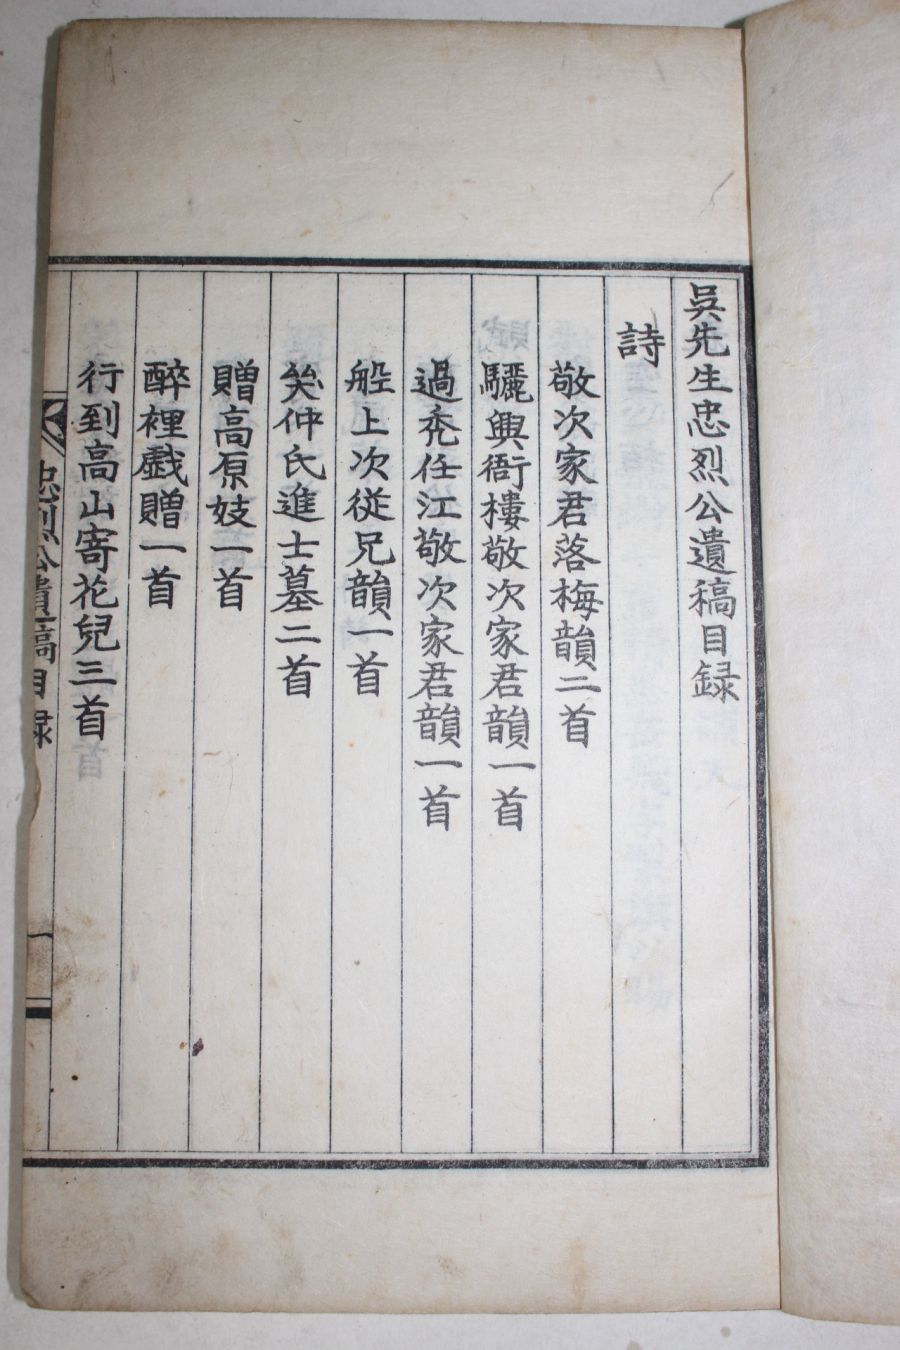 吳先生忠烈公遺稿目録
詩
敬次家君落梅韻二首
驪興衙樓敬次家君韻一首
過禿任江敬次家君韻一首
船上次從兄韻一首
哭仲氏進士墓二首
贈高原妓一首
醉裡戱贈一首
行到高山寄花兒三首
忠烈公遺稿目録
一